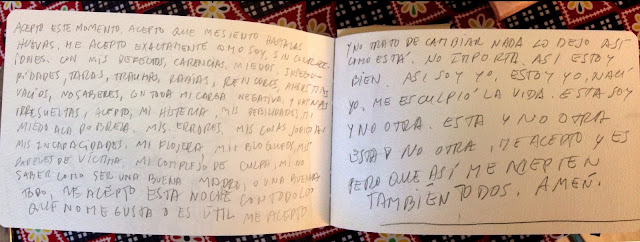 ACEPTO ESTE MOMENTO. ACEPTO QUE ME SIENTO HASTA LAS
HUEVAS. ME ACEPTO EXACTAMENTE COMO SOY, SIN CORREC-
CIONES. CON MIS DEFECTOS, CARENCIAS, MIEDOS, INSEGU-
RIDADES, TARAS, TRAUMAS, RABIAS, RENCORES, AMARGURAS
VACÍOS, NO SABERES, CON TODA MI CARGA NEGATIVA Y
IRRESUELTAS, ACEPTO, MI HISTERIA, MIS DEBILIDADES, MI
MIEDO A LA POBREZA. MIS ERRORES, MIS
MIS INCAPACIDADES, MI FLOJERA, MIS BLOQUEOS, MIS
PAPELES DE VÍCTIMA, MI COMPLEJO DE CULPA, MI NO
SABER COMO SER UNA BUENA MADRE, O UNA BUENA
TODO, ME ACEPTO ESTA NOCHE CON TODO LO
QUE NO ME GUSTA O ES ÚTIL ME ACEPTO
Y NO TRATO DE CAMBIAR NADA LO DEJO ASÍ
COMO ESTÁ. NO IMPORTA. ASÍ ESTOY
BIEN. ASÍ SOY YO, ESTOY YO, NACÍ
YO. ME ESCULPIÓ LA VIDA. ESTA SOY
Y NO OTRA. ESTA Y NO OTRA
ESTA Y NO OTRA. ME ACEPTO Y ES
PERO QUE ASÍ ME ACEPTEN
TAMBIÉN TODOS. AMÉN.